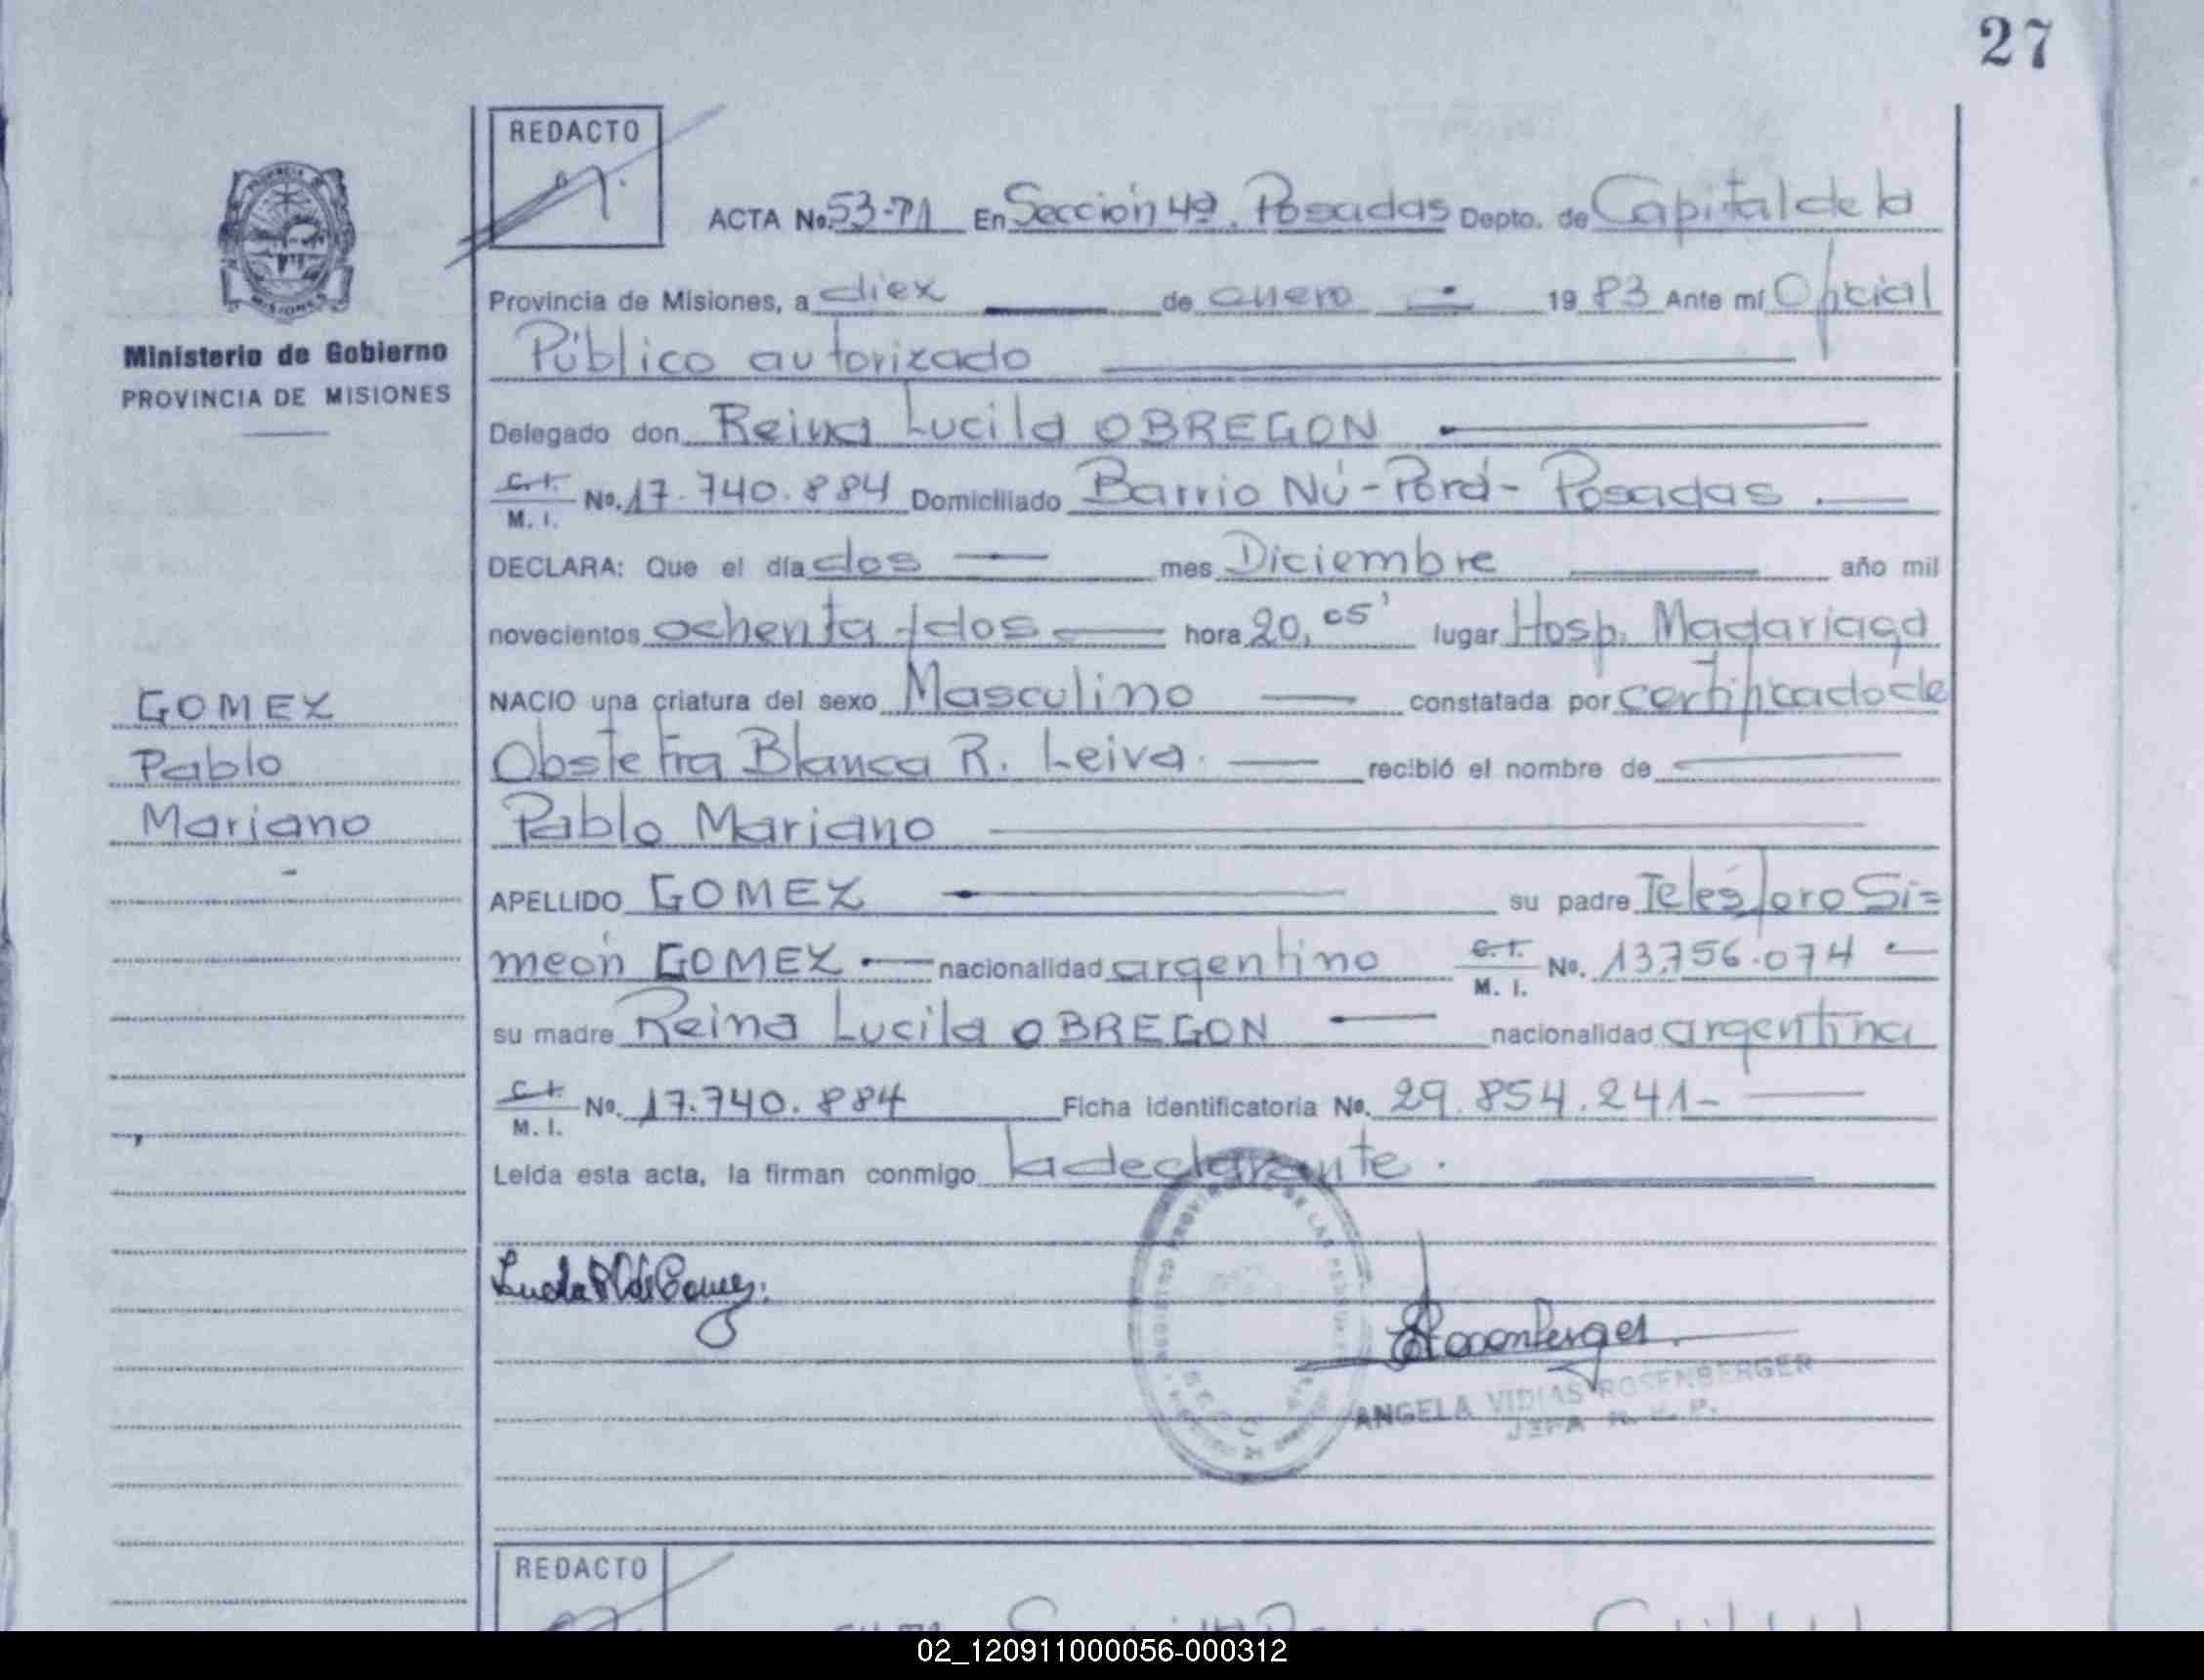 27
REDACTO
ACTA No. 53-71 En Sección 4ª. Posadas Depto. de Capital de la
Provincia de Misiones, a diez de enero 1983 Ante mí Oficial
Público autorizado
Ministerio de Gobierno
PROVINCIA DE MISIONES
Delegado don Reina Lucila OBREGON
C.I. M.I. No. 17.740.884 Domiciliado Barrio Nú-Porá- Posadas.
DECLARA: Que el día dos mes Diciembre año mil
novecientos ochenta y dos hora 20,05' lugar Hosp. Madariaga
NACIO una criatura del sexo Masculino constatada por certificado de
Obstetra Blanca R. Leiva. recibió el nombre de
Pablo Mariano
GOMEZ
Pablo
Mariano
APELLIDO GOMEZ su padre Telésforo Si=
meón GOMEZ nacionalidad argentino C.I. M.I. No. 13.756.074
su madre Reina Lucila OBREGON nacionalidad argentina
C.I. M.I. No. 17.740.884 Ficha identificatoria No. 29.854.241-
Leída esta acta, la firman conmigo la declarante.
ANGELA VIDIAS ROSENBERGER
JEFA R. P.
REDACTO
02_120911000056-000312